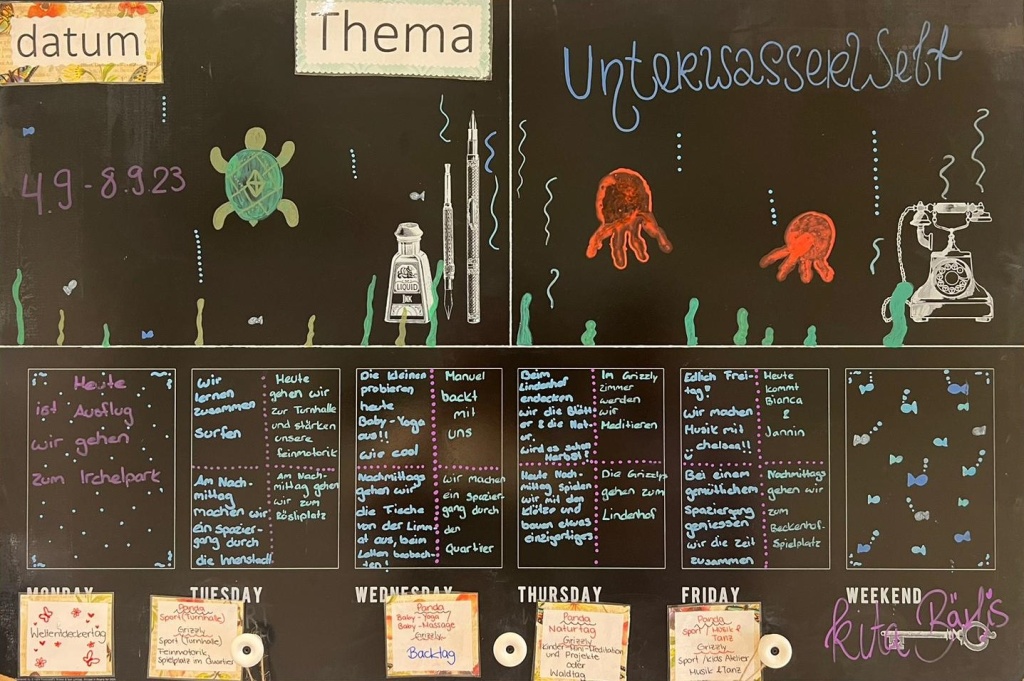 datum
Thema
Unterwasserwelt
4.9 - 8.9.23
LIQUID
INK
Heute
ist Ausflug
wir gehen
zum Irchelpark
Wir
lernen
zusammen
Surfen
Heute
gehen wir
zur Turnhalle
und stärken
unsere
feinmotorik
Am Nach-
mittag
machen wir
ein Spazier-
gang durch
die Innenstadt
Am Nachmit-
tag gehen
wir zum
Rösliplatz
Die Kleinen
probieren
heute
Baby-Yoga
aus!!
wir cool
Manuel
backt
mit
uns
Nachmittags
gehen wir
die Fische
von der Limm
at aus, beim
Letten beobach-
ten!
wir machen
ein Spazier-
gang durch
den
Quartier
Beim
Lindenhof
endecken
wir die Blätt-
er & die Nat-
ur.
wird es schon
Herbst?
Im Grizzly
zimmer
werden
wir
Meditieren
Heute Nach-
mittag spielen
wir mit den
Klötze und
bauen etwas
einzigartiges
Die Grizzlys
gehen zum
Lindenhof
Edlich Frei-
tag!
Wir machen
Musik mit
chelsea!!
Heute
kommt
Bianca
&
Jannin
Bei einem
gemütlichem
Spaziergang
geniessen
wir die Zeit
zusammen
Nachmittags
gehen wir
zum
Beckenhof-
Spielplatz
MONDAY
TUESDAY
WEDNESDAY
THURSDAY
FRIDAY
WEEKEND
Weltentdeckertag
Panda
Sport (Turnhalle)
Grizzly
Sport (Turnhalle)
Feinmotorik,
Spielplatz im Quartier
Panda
Baby-Yoga
Baby-Massage
Grizzly
Backtag
Panda
Naturtag
Grizzly
Kinder-Mini-Meditation
und Projekte
oder
Waldtag
Panda
Sport / Musik &
Tanz
Grizzly
Sport / Kids Atelier
Musik & Tanz
Kita Bärlis